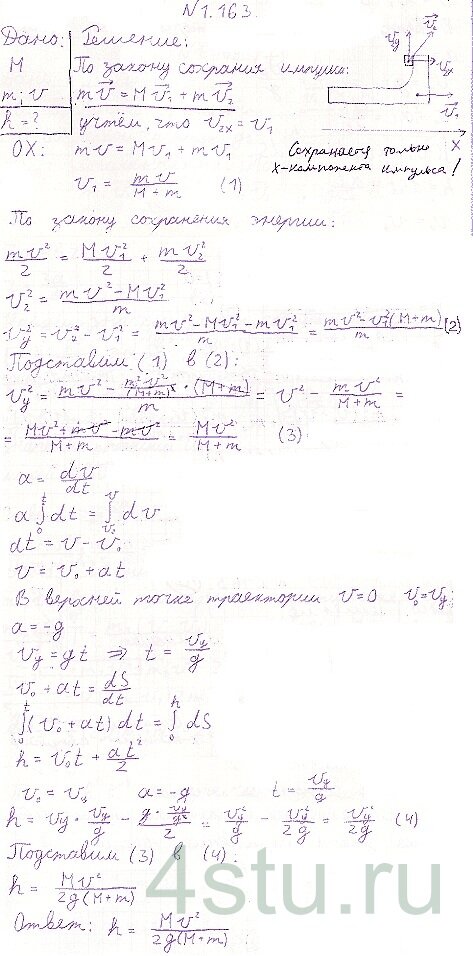 N 1.163
Дано: Решение:
M По закону сохрания импульса:
m; v m\vec{v} = M\vec{v}_1 + m\vec{v}_2
h = ? учтём, что v_{2x} = v_1
OX: mv = Mv_1 + mv_1
v_1 = \frac{mv}{M+m} (1)
v_y \vec{v}_2
v_x
\vec{v}_1
X
Сохраняется только
X-компонента импульса!
По закону сохранения энергии:
\frac{mv^2}{2} = \frac{Mv_1^2}{2} + \frac{mv_2^2}{2}
v_2^2 = \frac{mv^2 - Mv_1^2}{m}
v_y^2 = v_2^2 - v_1^2 = \frac{mv^2 - Mv_1^2 - mv_1^2}{m} = \frac{mv^2 - v_1^2(M+m)}{m} (2)
Подставим (1) в (2):
v_y^2 = \frac{mv^2 - \frac{m^2 v^2}{(M+m)^2} \cdot (M+m)}{m} = v^2 - \frac{mv^2}{M+m} =
= \frac{Mv^2 + mv^2 - mv^2}{M+m} = \frac{Mv^2}{M+m} (3)
a = \frac{dv}{dt}
a \int_0^t dt = \int_{v_0}^v dv
at = v - v_0
v = v_0 + at
В верхней точке траектории v = 0 v_0 = v_y:
a = -g
v_y = gt ⇒ t = \frac{v_y}{g}
v_0 + at = \frac{dS}{dt}
\int_0^t (v_0 + at) dt = \int_0^h dS
h = v_0 t + \frac{at^2}{2}
v_0 = v_y a = -g t = \frac{v_y}{g}
h = v_y \cdot \frac{v_y}{g} - \frac{g \cdot \frac{v_y^2}{g^2}}{2} = \frac{v_y^2}{g} - \frac{v_y^2}{2g} = \frac{v_y^2}{2g} (4)
Подставим (3) в (4):
h = \frac{Mv^2}{2g(M+m)}
Ответ: h = \frac{Mv^2}{2g(M+m)}
4stu.ru